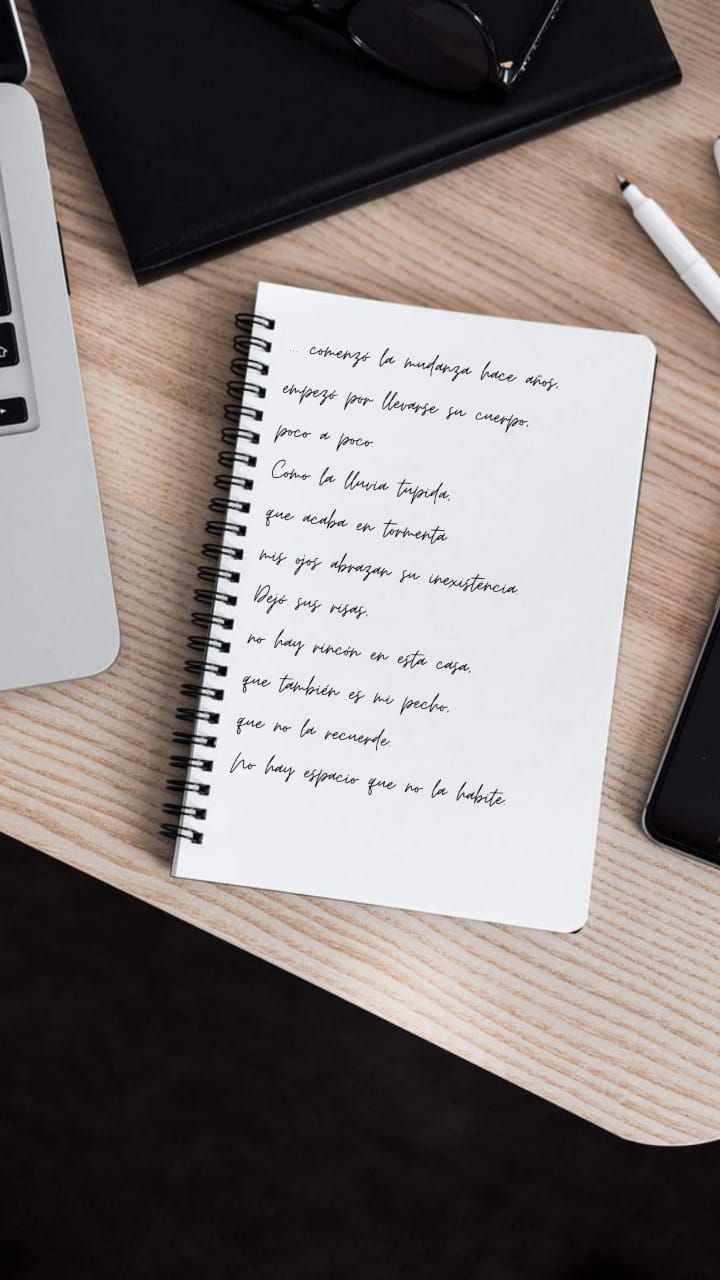 ... comenzó la mudanza hace años,
empezó por llevarse su cuerpo,
poco a poco.
Como la lluvia tupida,
que acaba en tormenta
mis ojos abrazan su inexistencia.
Dejó sus risas,
no hay rincón en esta casa,
que también es mi pecho,
que no la recuerde.
No hay espacio que no la habite.